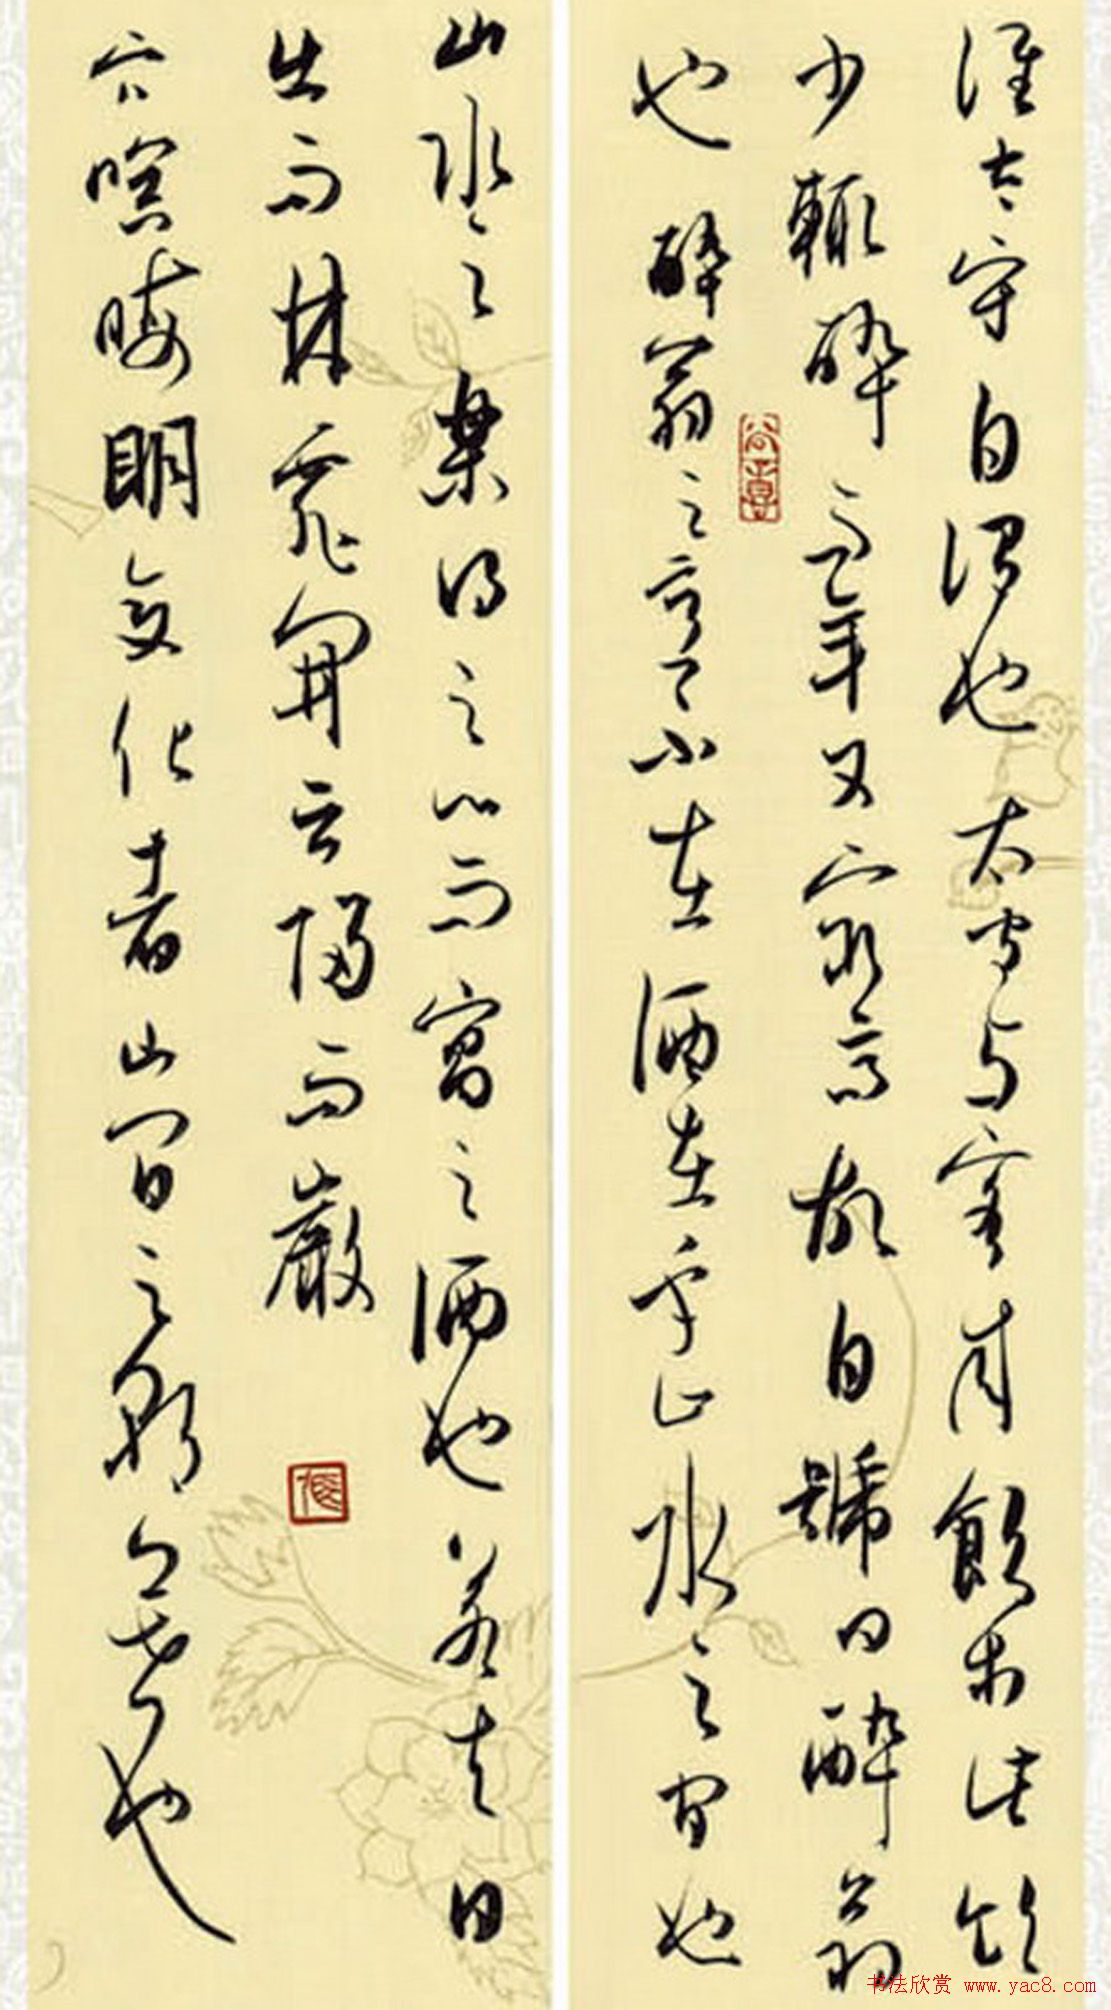 谁太守自谓也太守与客来飲於此飲
少輒醉而年又最高故自號曰醉翁
也醉翁之意不在酒在乎山水之间也
山水之樂得之心而寓之酒也若夫日
出而林霏開云歸而巖
穴暝晦明变化者山间之朝暮也
书法欣赏 www.yac8.com